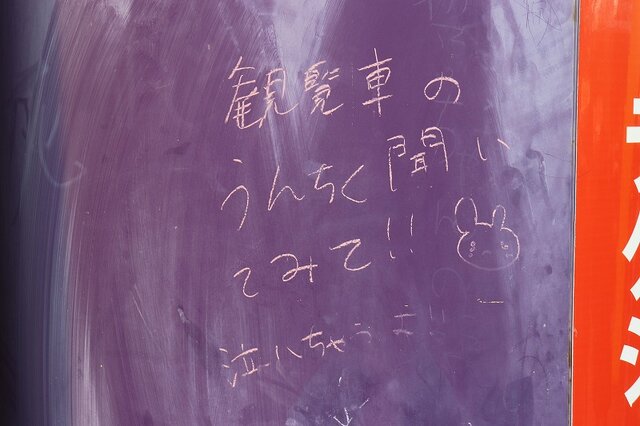 観覧車の
うんちく聞い
てみて!!
泣いちゃう